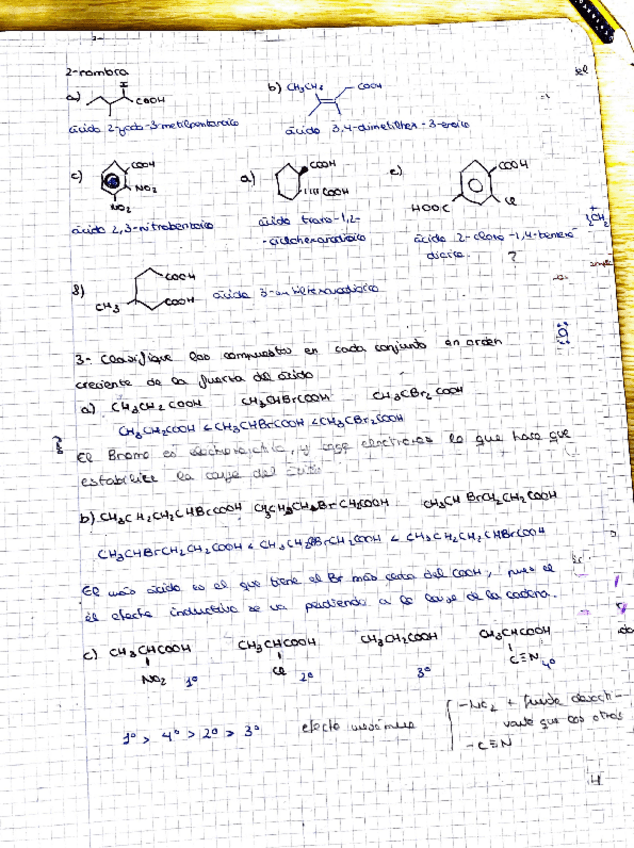 2-nombra
a) I COOH
ácido 2-yodo-3-metilpentanoico
b) CH3CH2 COOH
ácido 3,4-dimetilhex-3-enoico
c) COOH
NO2
NO2
ácido 2,3-nitrobenzoico
a) COOH
COOH
ácido trans-1,2-
-ciclohexanodioico
e) COOH
HOOC Cl
ácido 2-cloro-1,4-benceno
dioico. ?
8) COOH
CH3 COOH
ácido 3-metilhexanodioico
3- Clasifique los compuestos en cada conjunto en orden
creciente de la fuerza del ácido
a) CH3CH2COOH CH3CHBrCOOH CH3CBr2COOH
CH3CH2COOH < CH3CHBrCOOH < CH3CBr2COOH
El Bromo es y coge electrones lo que hace que
estabilice la carga del
b) CH3CH2CH2CHBrCOOH CH3CH2CHBrCH2COOH CH3CHBrCH2CH2COOH
CH3CHBrCH2CH2COOH < CH3CH2CHBrCH2COOH < CH3CH2CH2CHBrCOOH
El más ácido es el que tiene el Br más cerca del COOH, pues el
el efecto inductivo se va perdiendo a lo largo de la cadena.
c) CH3CHCOOH CH3CHCOOH CH3CH2COOH CH3CHCOOH
NO2 1º Cl 2º 3º C≡N 4º
1º > 4º > 2º > 3º efecto
-NO2 + fuerte
que los otros
-C≡N
4